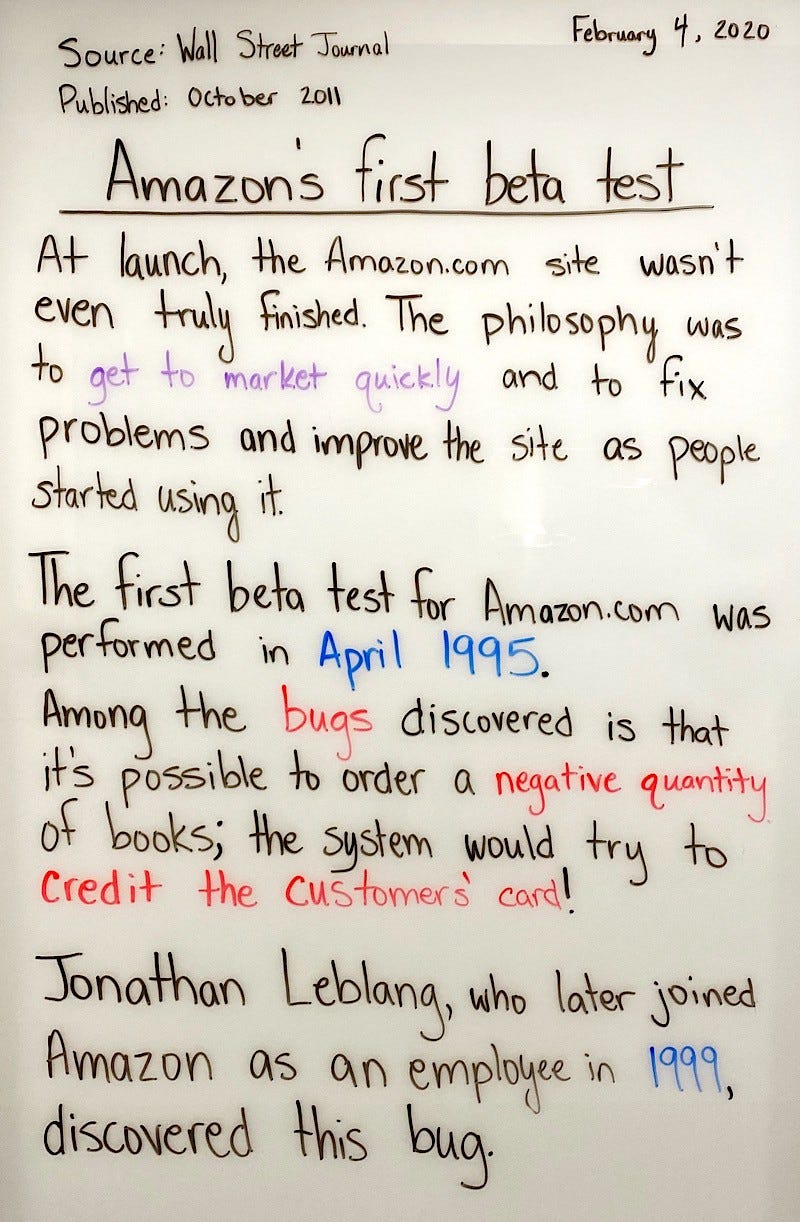 February 4, 2020
Source: Wall Street Journal
Published: October 2011
Amazon's first beta test
At launch, the Amazon.com site wasn't
even truly finished. The philosophy was
to get to market quickly and to fix
problems and improve the site as people
started using it.
The first beta test for Amazon.com was
performed in April 1995.
Among the bugs discovered is that
it's possible to order a negative quantity
of books; the system would try to
credit the customers' card!
Jonathan Leblang, who later joined
Amazon as an employee in 1999,
discovered this bug.